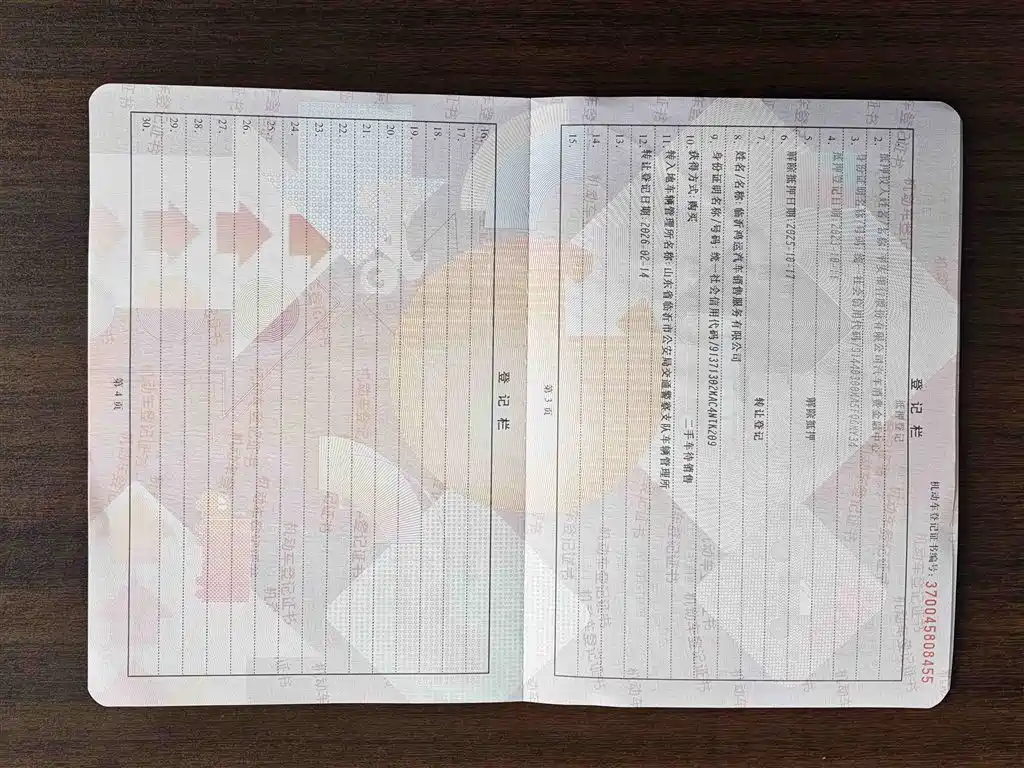 机动车登记证书编号：370045808455
登 记 栏
1. 抵押登记
2. 抵押权人姓名/名称：平安银行股份有限公司汽车消费金融中心
3. 身份证明名称/号码：统一社会信用代码
4. 抵押登记日期：2023-10-11
5. 解除抵押
6. 解除抵押日期：2025-10-17
7. 转让登记
8. 姓名/名称：临沂鸿运汽车销售服务有限公司
9. 身份证明名称/号码：统一社会信用代码/91371302MAC4NTK209
10. 获得方式：购买 二手车待销售
11. 转入地车辆管理所名称：山东省临沂市公安局交通警察支队车辆管理所
12. 转让登记日期：2026-02-14
13.
14.
15.
第 3 页
登 记 栏
16.
17.
18.
19.
20.
21.
22.
23.
24.
25.
26.
27.
28.
29.
30.
第 4 页